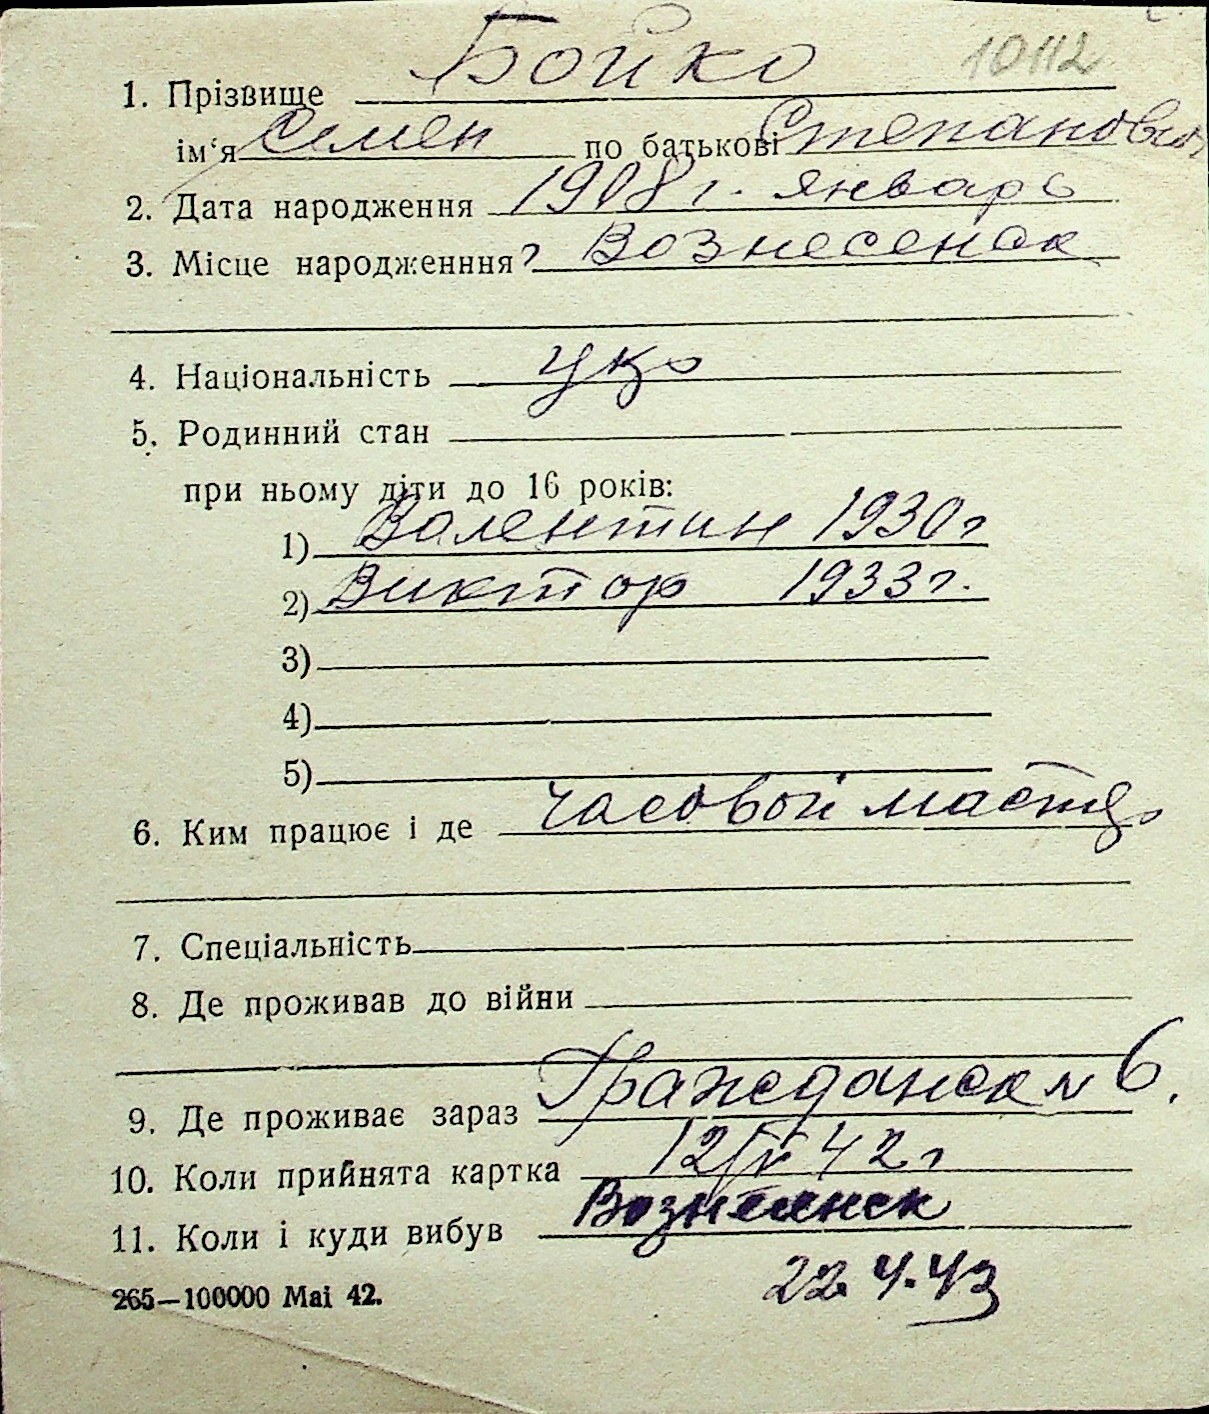 10112
1. Прізвище Бойко
ім‘я Семен по батькові Степанович
2. Дата народження 1908 г. январь
3. Місце народженння? Вознесенск
4. Національність укр
5. Родинний стан
при ньому діти до 16 років:
1) Валентин 1930 г
2) Виктор 1933 г.
3)
4)
5)
6. Ким працює і де часовой мастер
7. Спеціальність
8. Де проживав до війни
9. Де проживає зараз Гражданск N 6.
10. Коли прийнята картка 42 г
11. Коли і куди вибув Вознесенск
22.4.43
265—100000 Mai 42.